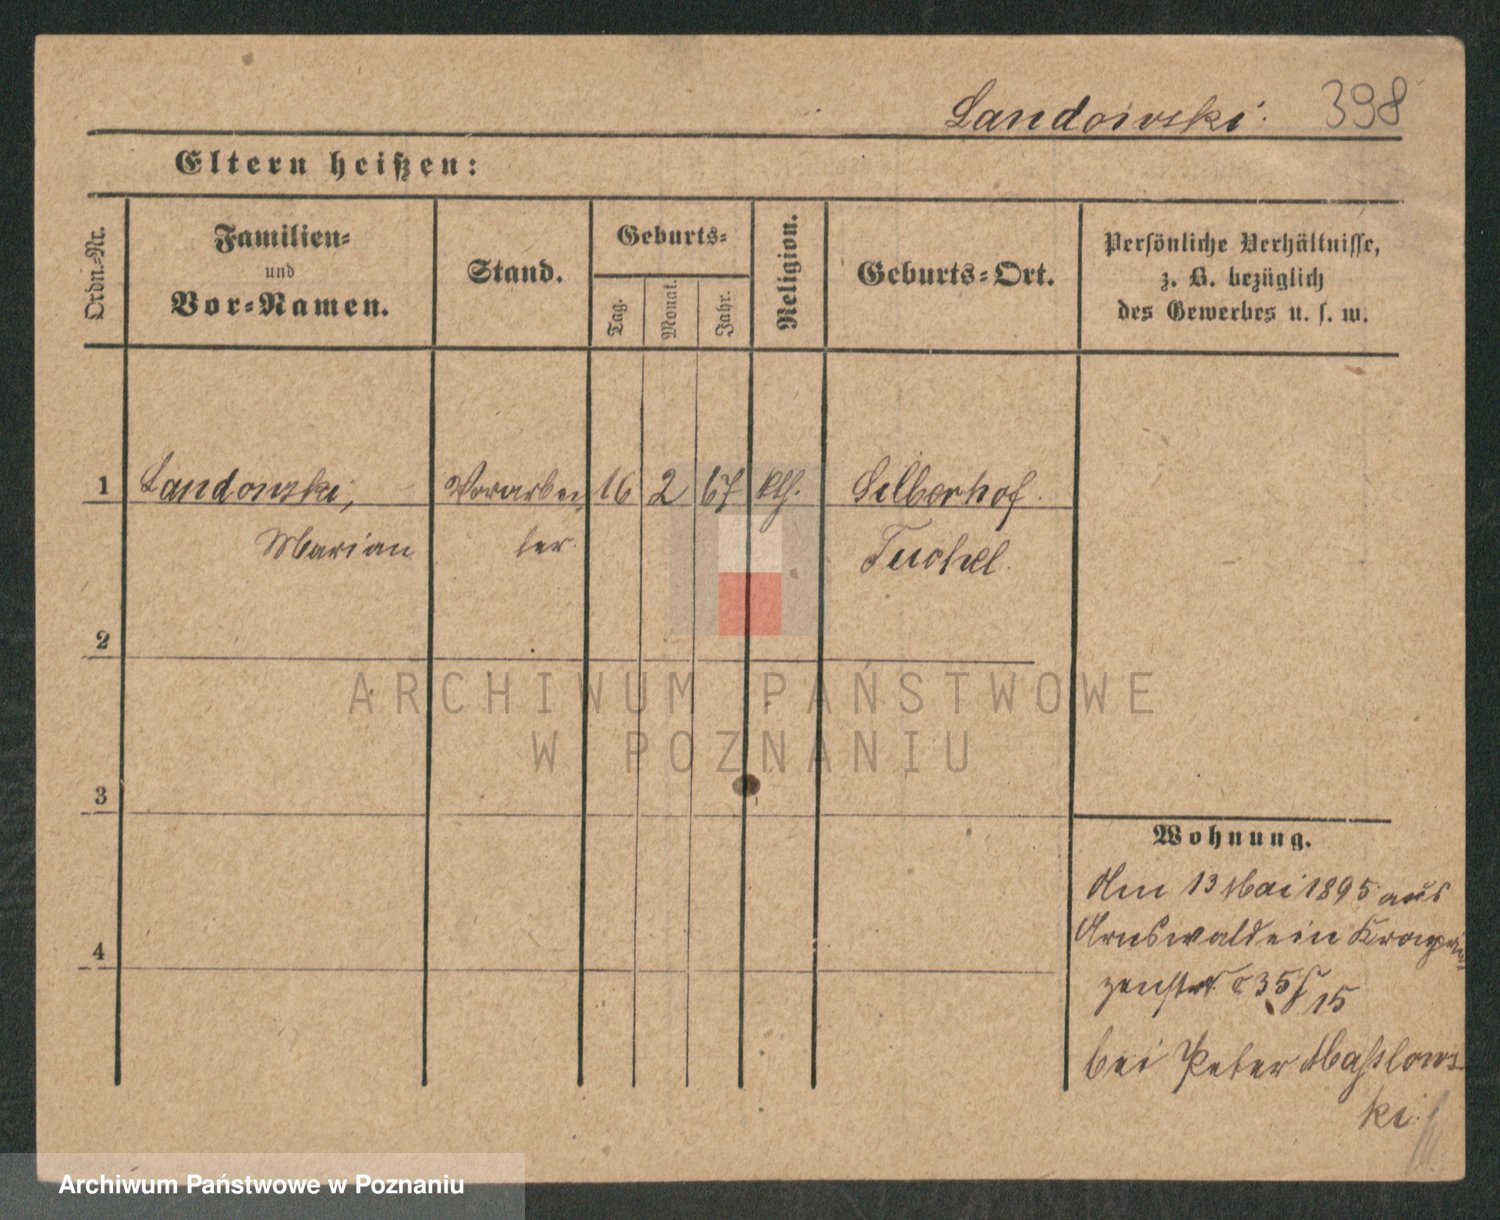 Landowski.
398
Eltern heißen:
Ordn.-Nr.
Familien-
und
Vor-Namen.
Stand.
Geburts-
Tag.
Monat.
Jahr.
Religion.
Geburts-Ort.
Persönliche Verhältnisse,
z. B. bezüglich
des Gewerbes u. s. w.
1 Landowski, Vorarbei 16 2 67 kth. Silberhof
Marian ter. Tuchel.
2
3
4
Wohnung.
Am 13 Mai 1895 aus
Arnswalde in
35 15
bei Peter Maßlows
ki
ARCHIWUM PAŃSTWOWE
W POZNANIU
Archiwum Państwowe w Poznaniu